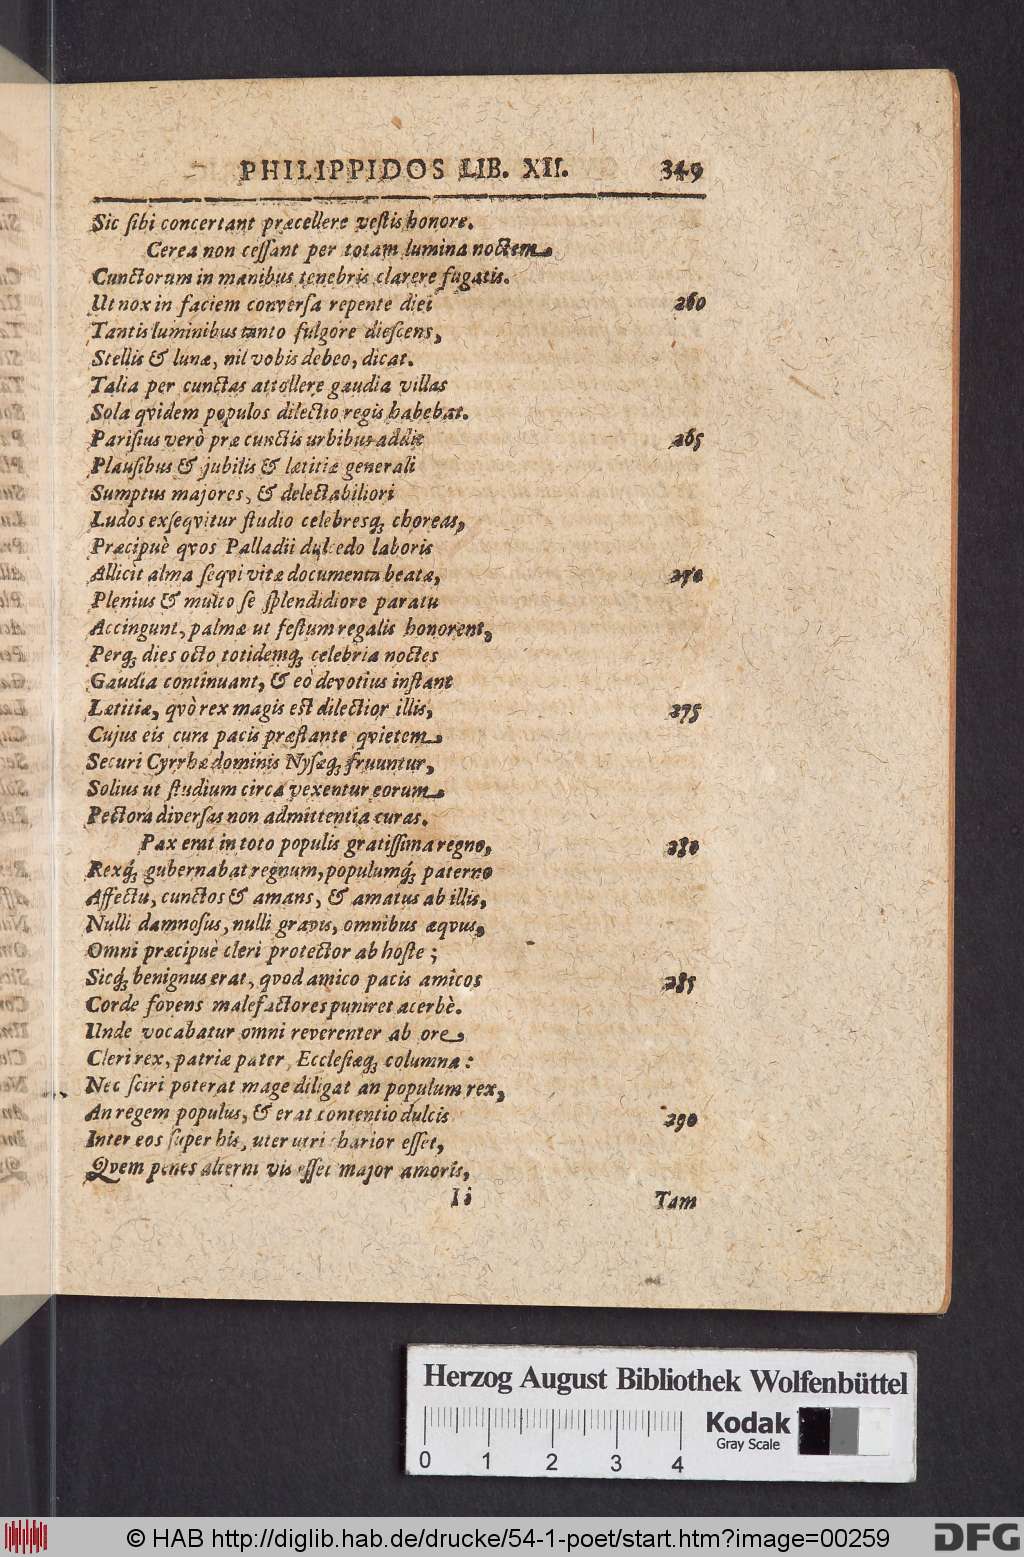 PHILIPPIDOS LIB. XII. 349
Sic sibi concertant præcellere vestis honore.
Cerea non cessant per totam lumina noctem
Cunctorum in manibus tenebris clarere fugatis.
Ut nox in faciem conversa repente diei 260
Tantis luminibus tanto fulgore diescens,
Stellis & lunæ, nil vobis debeo, dicat.
Talia per cunctas attollere gaudia villas
Sola qvidem populos dilectio regis habebat.
Parisius verò præ cunctis urbibus addit 265
Plausibus & jubilis & lætitiæ generali
Sumptus majores, & delectabiliori
Ludos exseqvitur studio celebresq; choreas,
Præcipuè qvos Palladii dulcedo laboris
Allicit alma seqvi vitæ documenta beatæ, 270
Plenius & multo se splendidiore paratu
Accingunt, palmæ ut festum regalis honorent,
Perq; dies octo totidemq; celebria noctes
Gaudia continuant, & eò devotius instant
Lætitiæ, qvò rex magis est dilectior illis, 275
Cujus eis cura pacis præstante qvietem
Securi Cyrrhæ dominis Nysæq; fruuntur,
Solius ut studium circa vexentur eorum
Pectora diversas non admittentia curas.
Pax erat in toto populis gratissima regno, 280
Rexq; gubernabat regnum, populumq; paterno
Affectu, cunctos & amans, & amatus ab illis,
Nulli damnosus, nulli gravis, omnibus æqvus,
Omni præcipuè cleri protector ab hoste;
Sicq; benignus erat, qvod amico pacis amicos 285
Corde fovens malefactores puniret acerbè.
Unde vocabatur omni reverenter ab ore
Cleri rex, patriæ pater, Ecclesiæq; columna:
Nec sciri poterat mage diligat an populum rex,
An regem populus, & erat contentio dulcis 290
Inter eos super his, uter utri charior esset,
Qvem penes alterni vis esset major amoris,
Ii Tam
Herzog August Bibliothek Wolfenbüttel
Kodak
Gray Scale
0 1 2 3 4
© HAB http://diglib.hab.de/drucke/54-1-poet/start.htm?image=00259
DFG